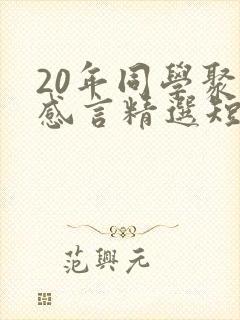 20年同學聚
感言精選短
范興元